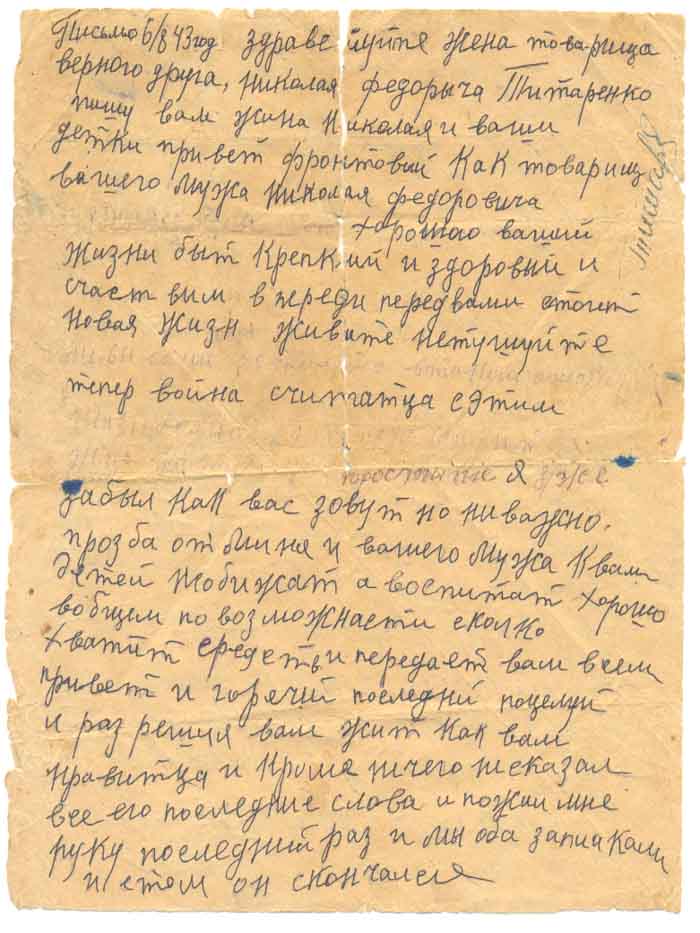 Письмо 6/8 43 год здраве йуйте жена товарища
верного друга, Николая федорыча Титаренко
пишу вам жина Николая и ваши
детки привет фронтовий Как товарищ
вашего мужа Николая федоровича
хорошаю вашей
жизни быт Крепкий и здоровый и
счаст вим в переди перед вами стоит
новая жизн живите нетушуйте
тепер война считатца с этим
простите я уже
забыл как вас зовут но ниважно.
прозба от миня и вашего мужа к вам
детей не обижат а воспитат хорошо
вобщем по возможнасти сколко
хватит средств и передает вам всем
привет и горячий последний поцелуй
и раз решил вам жит как вам
нравитца и кроме ничего не сказал
все его последние слова и пожал мне
руку последний раз и мы оба заплакали
и етом он скончался